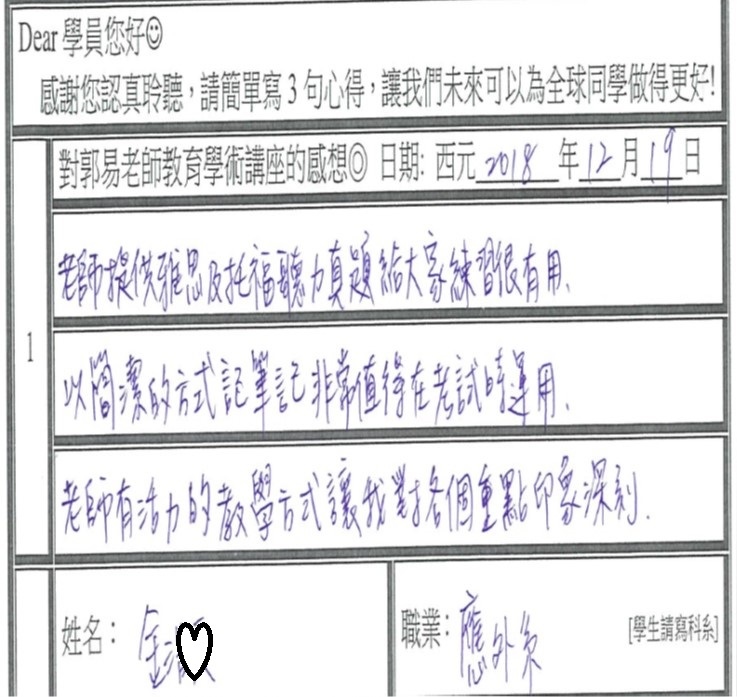 Dear 學員您好☺
感謝您認真聆聽，請簡單寫3句心得，讓我們未來可以為全球同學做得更好!
對郭易老師教育學術講座的感想◎ 日期: 西元 2018 年 12 月 19 日
1
老師提供雅思及托福聽力真題給大家練習很有用、
以簡潔的方式記筆記非常值得在考試時運用、
老師有活力的教學方式讓我對各個重點印象深刻.
姓名： 金
職業： 應外系 [學生請寫科系]